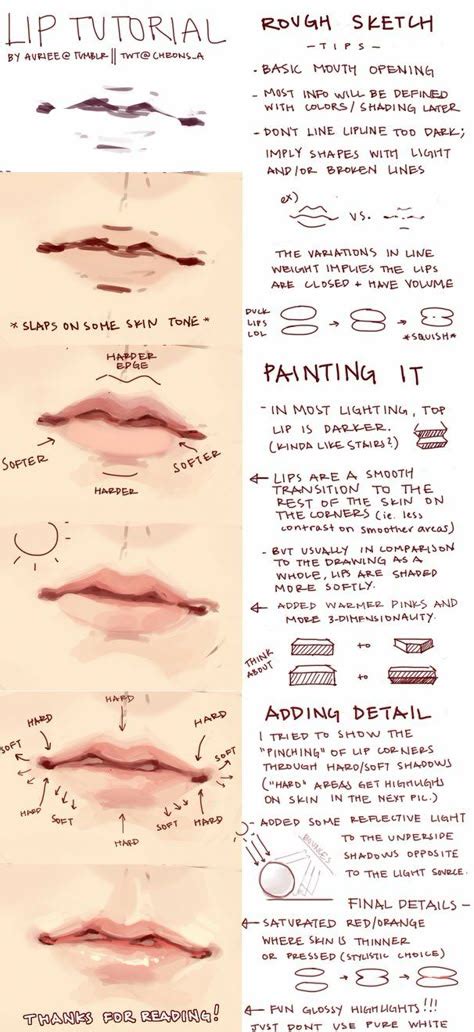 LIP TUTORIAL
BY AURIEE@TUMBLR || TWT@CHRONS_A
ROUGH SKETCH
- TIPS -
- BASIC MOUTH OPENING
- MOST INFO WILL BE DEFINED
WITH COLORS/SHADING LATER
- DON'T LINE LIPLINE TOO DARK;
IMPLY SHAPES WITH LIGHT
AND/OR BROKEN LINES
ex)
VS.
THE VARIATIONS IN LINE
WEIGHT IMPLIES THE LIPS
ARE CLOSED + HAVE VOLUME
DUCK
LIPS
LOL
*SQUISH*
* SLAPS ON SOME SKIN TONE *
HARDER
EDGE
SOFTER
SOFTER
HARDER
PAINTING IT
- IN MOST LIGHTING, TOP
LIP IS DARKER.
(KINDA LIKE STAIRS?)
LIPS ARE A SMOOTH
TRANSITION TO THE
REST OF THE SKIN ON
THE CORNERS (ie. less
contrast on smoother areas)
- BUT USUALLY IN COMPARISON
TO THE DRAWING AS A
WHOLE, LIPS ARE SHADED
MORE SOFTLY.
ADDED WARMER PINKS AND
MORE 3-DIMENSIONALITY.
THINK
ABOUT
to
to
HARD
HARD
HARD
SOFT
SOFT
HARD
SOFT
SOFT
HARD
HARD
ADDING DETAIL
I TRIED TO SHOW THE
"PINCHING" OF LIP CORNERS
THROUGH HARD/SOFT SHADOWS
("HARD" AREAS GET HIGHLIGHTS
ON SKIN IN THE NEXT PIC.)
- ADDED SOME REFLECTIVE LIGHT
TO THE UNDERSIDE
SHADOWS OPPOSITE
TO THE LIGHT SOURCE.
BOUNCES
FINAL DETAILS -
SATURATED RED/ORANGE
WHERE SKIN IS THINNER
OR PRESSED (STYLISTIC CHOICE)
FUN GLOSSY HIGHLIGHTS!!!
JUST DONT USE PURE WHITE
THANKS FOR READING!